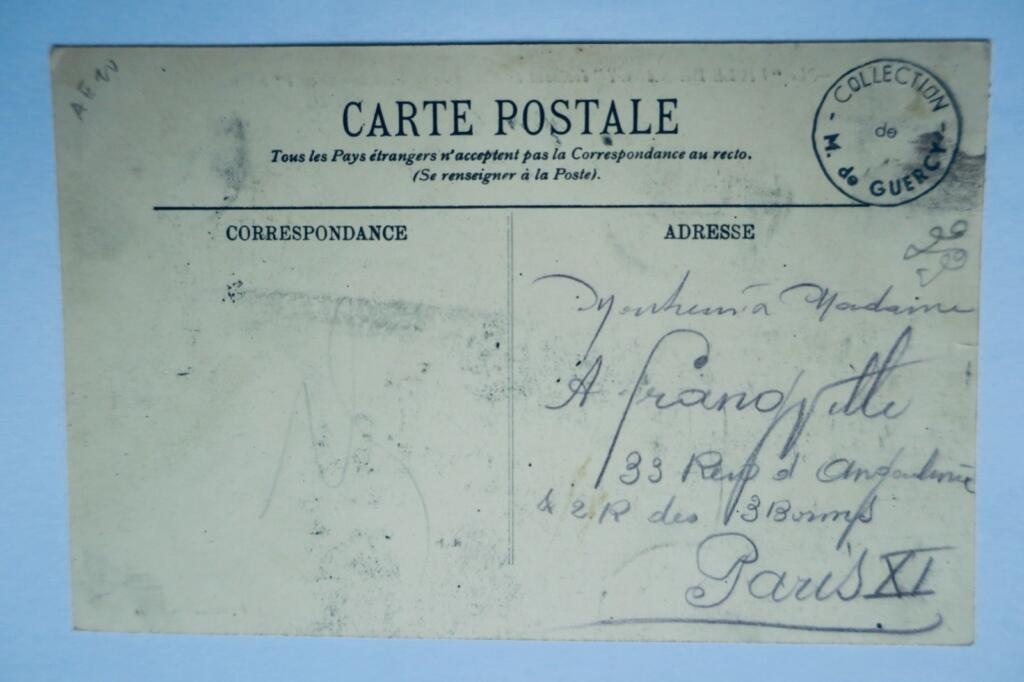 AEN
COLLECTION
de
M. de GUERCY
CARTE POSTALE
Tous les Pays étrangers n'acceptent pas la Correspondance au recto.
(Se renseigner à la Poste).
CORRESPONDANCE
ADRESSE
Madame
A
33 Rue d'Angoulème
& 2 R des 3 Bornes
Paris XI